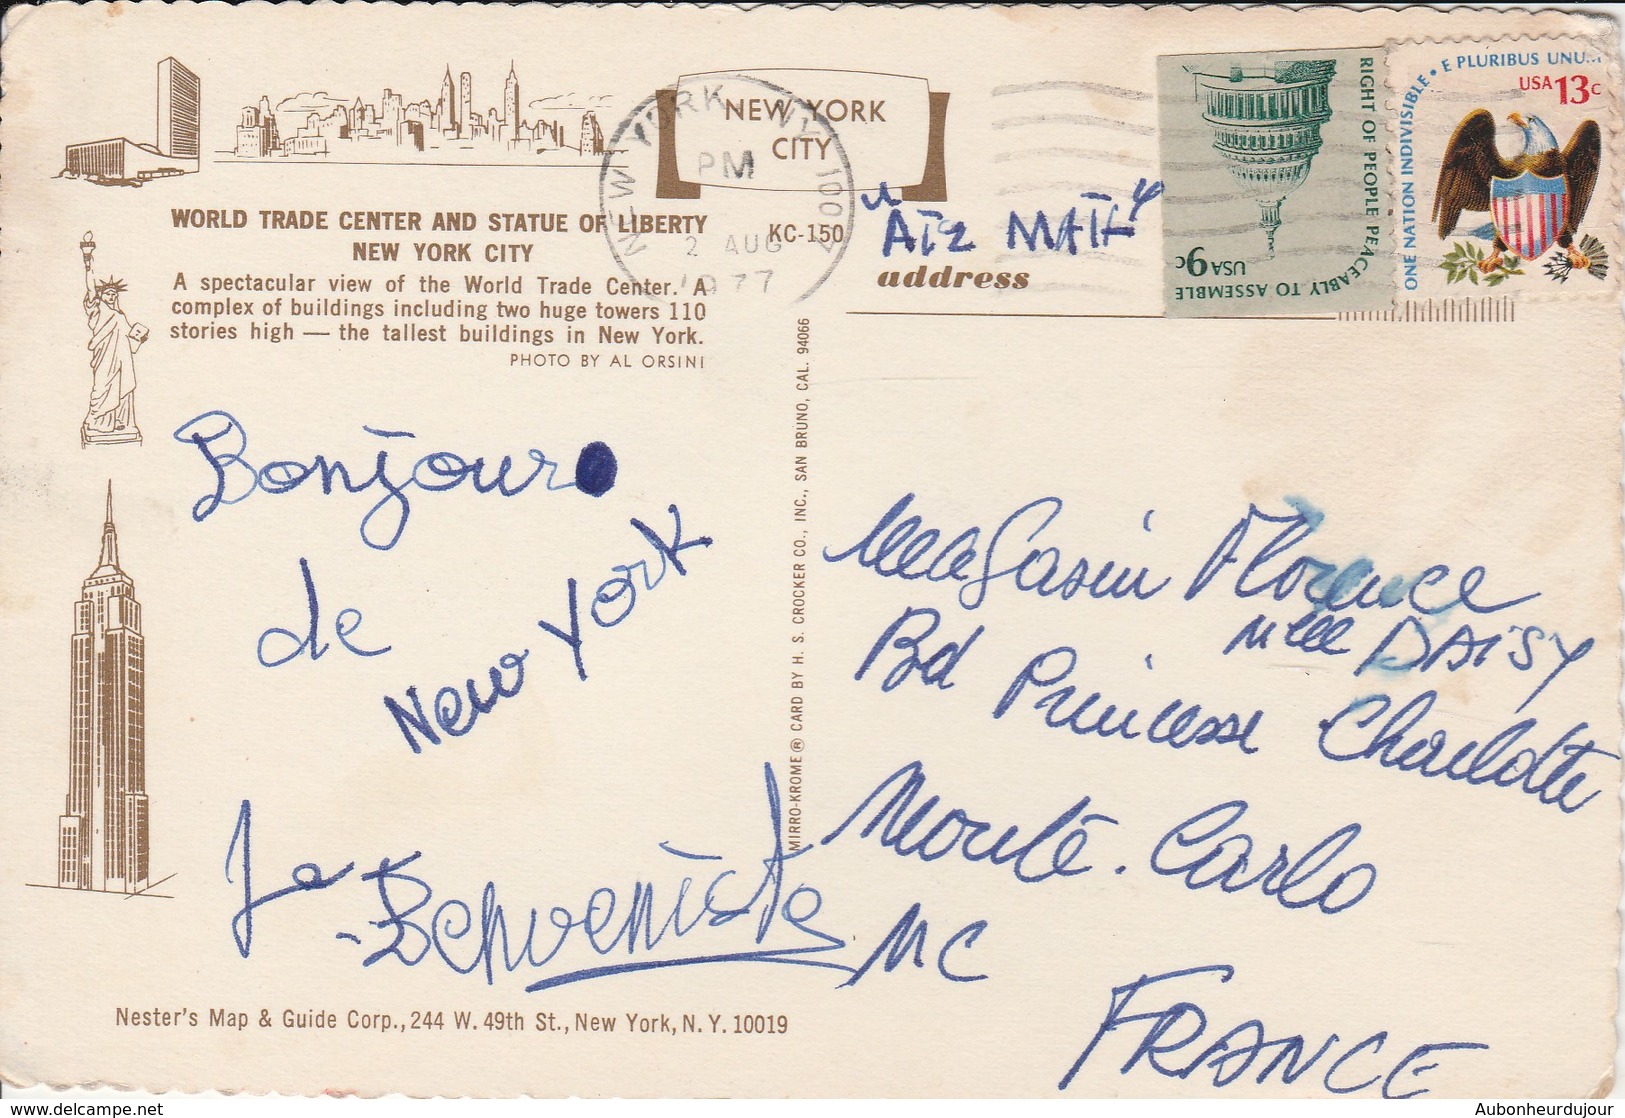 NEW YORK
CITY
NEW YORK, N.Y. 100
PM
2 AUG
1977
RIGHT OF PEOPLE PEACEABLY TO ASSEMBLE
USA 9c
ONE NATION INDIVISIBLE • E PLURIBUS UNU
USA 13c
WORLD TRADE CENTER AND STATUE OF LIBERTY
NEW YORK CITY
KC-150
A spectacular view of the World Trade Center. A
complex of buildings including two huge towers 110
stories high — the tallest buildings in New York.
PHOTO BY AL ORSINI
"AIR MAIL"
address
MIRRO-KROME® CARD BY H. S. CROCKER CO., INC., SAN BRUNO, CAL. 94066
Bonjour
de
New York
La
Magasin Florence
Mlle DAISY
Bd Princesse Charlotte
Monté-Carlo
MC
FRANCE
Nester's Map & Guide Corp., 244 W. 49th St., New York, N. Y. 10019
Aubonheurdujour